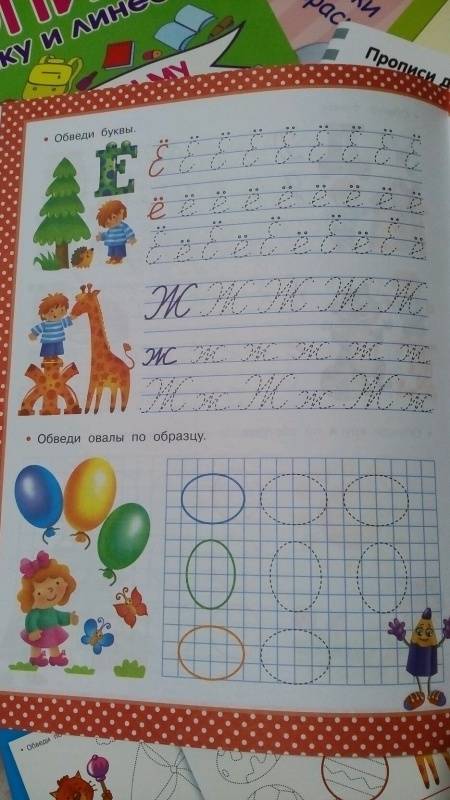 ку и лине
Прописи д
Обведи буквы.
Ё
Ё Ё Ё Ё Ё Ё Ё Ё Ё
ё ё ё ё ё ё ё ё ё
Ё ё Ё ё Ё ё Ё ё Ё ё
Ж Ж Ж Ж Ж
ж ж ж ж ж ж
Ж ж Ж ж Ж ж
Ж
Обведи овалы по образцу.
Обведи